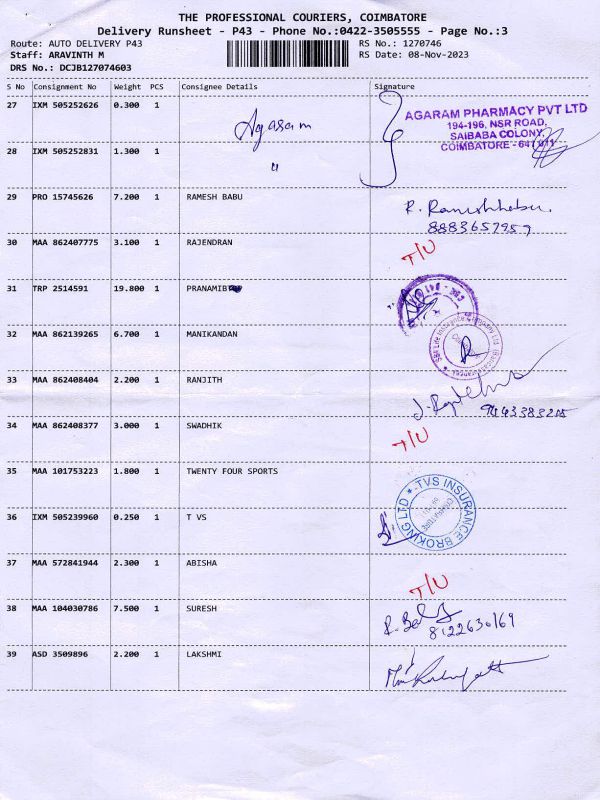 THE PROFESSIONAL COURIERS, COIMBATORE
Delivery Runsheet - P43 - Phone No.:0422-3505555 - Page No.:3
Route: AUTO DELIVERY P43 RS No.: 1270746
Staff: ARAVINTH M RS Date: 08-Nov-2023
DRS No.: DCJB127074603
S No Consignment No Weight PCS Consignee Details Signature
27 IXM 505252626 0.300 1 Agaram
AGARAM PHARMACY PVT LTD
194-196, NSR ROAD,
SAIBABA COLONY,
COIMBATORE - 641 011
28 IXM 505252831 1.300 1 "
29 PRO 15745626 7.200 1 RAMESH BABU R. Rameshbabu.
8883657957
30 MAA 862407775 3.100 1 RAJENDRAN T/U
31 TRP 2514591 19.800 1 PRANAMIB
32 MAA 862139265 6.700 1 MANIKANDAN SBI Life Insurance Company Ltd
33 MAA 862408404 2.200 1 RANJITH
9443383205
34 MAA 862408377 3.000 1 SWADHIK T/U
35 MAA 101753223 1.800 1 TWENTY FOUR SPORTS
36 IXM 505239960 0.250 1 T VS TVS INSURANCE BROKING LTD
37 MAA 572841944 2.300 1 ABISHA T/U
38 MAA 104030786 7.500 1 SURESH
8122630169
39 ASD 3509896 2.200 1 LAKSHMI